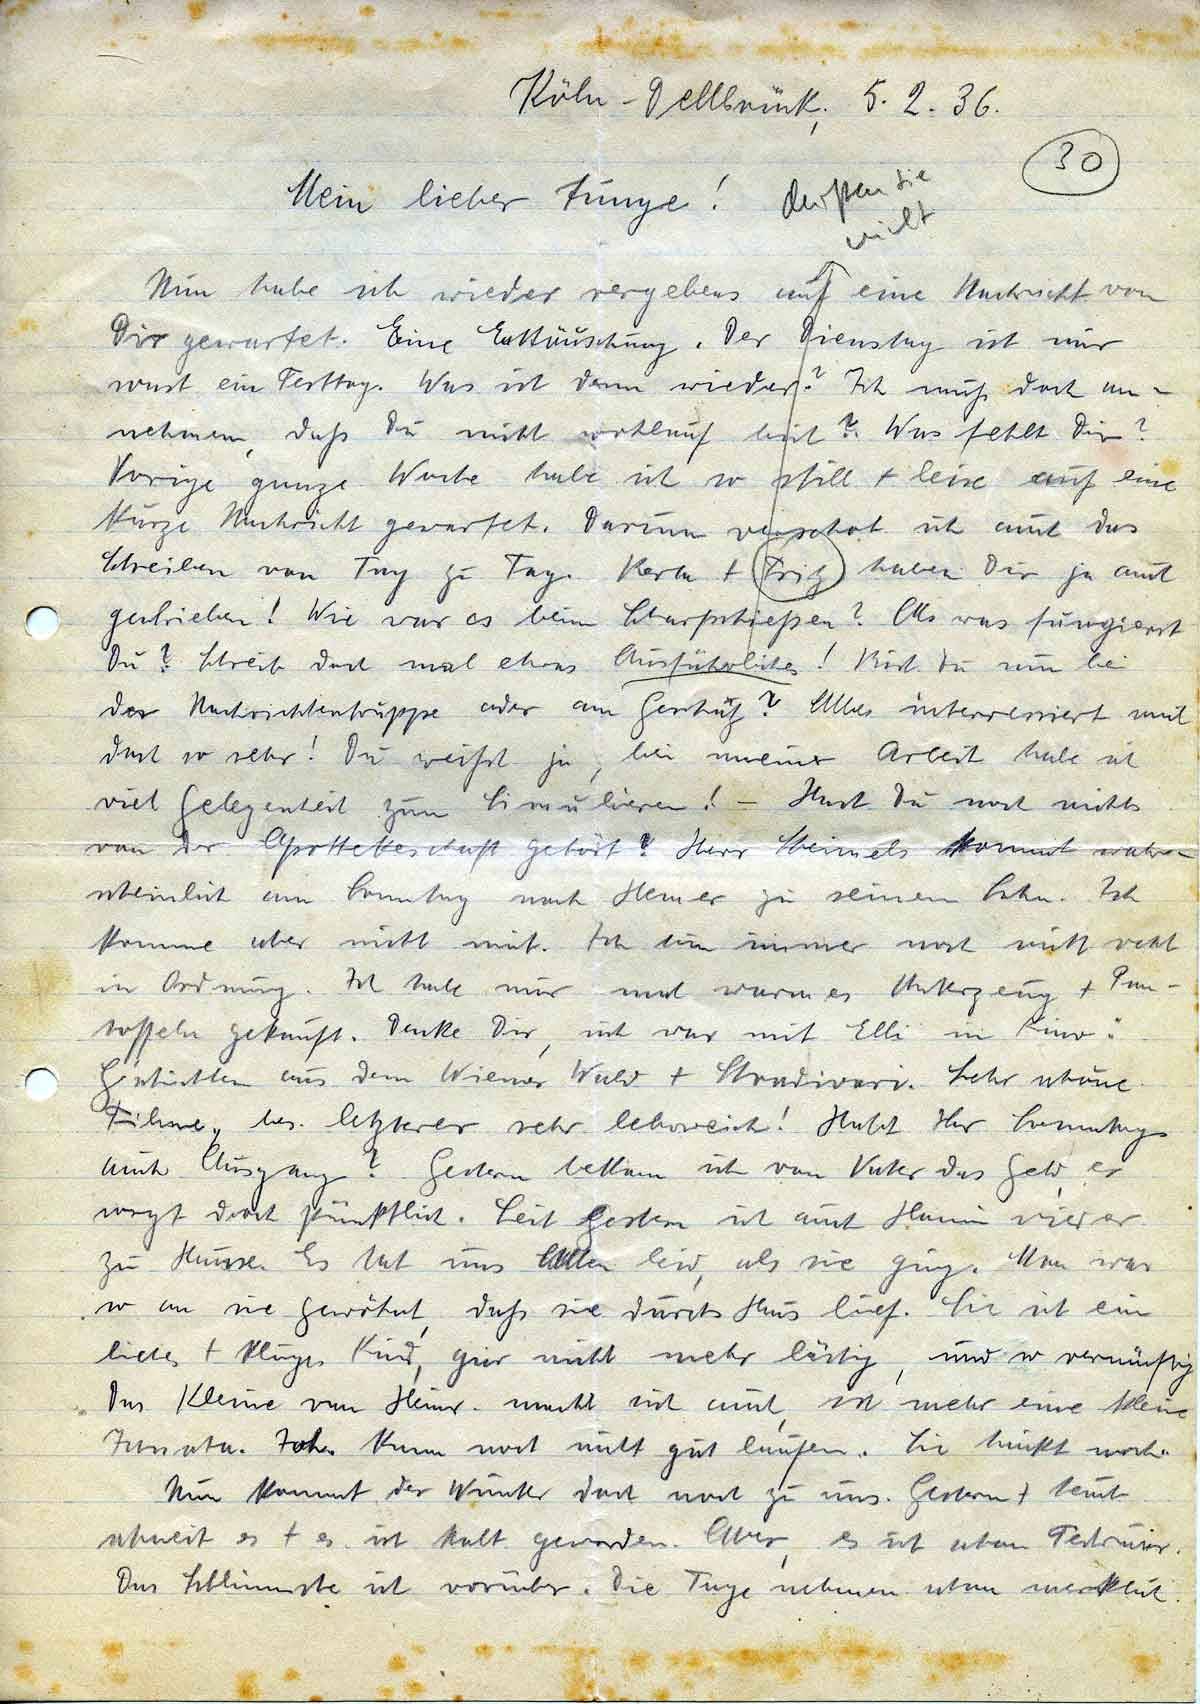 Köln-Dellbrück, 5.2.36.
30
Mein lieber Junge!
sie
nicht
Nun habe ich wieder vergebens auf eine Nachricht von
Dir gewartet. Eine Enttäuschung. Der Dienstag ist mir
sonst ein Festtag. Was ist denn wieder? Ich muß doch an-
nehmen, daß Du nicht wohlauf bist? Was fehlt Dir?
Vorige ganze Woche habe ich so still + leise auf eine
kurze Nachricht gewartet. Darum verschob ich auch das
Schreiben von Tag zu Tag. + Fritz haben Dir ja auch
geschrieben! Wie war es beim Scharfschießen? Als was fungierst
Du? Schreib doch mal etwas Ausführliches! Bist Du nun bei
der Nachrichtentruppe oder am Geschütz? Alles interressiert mich
doch so sehr! Du weißt ja, bei meiner Arbeit habe ich
viel Gelegenheit zum Simulieren! - Hast Du noch nichts
von der gehört? Herr kommt wahr-
scheinlich am Sonntag nach Hemer zu seinem Sohn. Ich
komme aber nicht mit. Ich bin immer noch nicht recht
in Ordnung. Ich habe mir mal warmes Unterzeug + Pan-
toffeln gekauft. Denke Dir, ich war mit Elli in Kino:
Geschichten aus dem Wiener Wald + Stradivari. Sehr schöne
Filme, bes. letzterer sehr lehrreich! Habt Ihr Sonntags
auch Ausgang? Gestern bekam ich von Vater das Geld, er
sorgt doch pünktlich. Seit Gestern ist auch Hanni wieder
zu Hause. Es tat uns Allen leid, als sie ging. Man war
so an sie gewöhnt, daß sie durchs Haus lief. Sie ist ein
liebes + kluges Kind, gar nicht mehr lästig, und so vernünftig
Das Kleine von Heinr. macht sich auch, ist mehr eine kleine
kann noch nicht gut laufen. Sie hinkt noch.
Nun kommt der Winter doch noch zu uns. Gestern + heute
schneit es + es ist kalt geworden. Aber, es ist schon Februar.
Das Schlimmste ist vorüber. Die Tage nehmen schon merklich